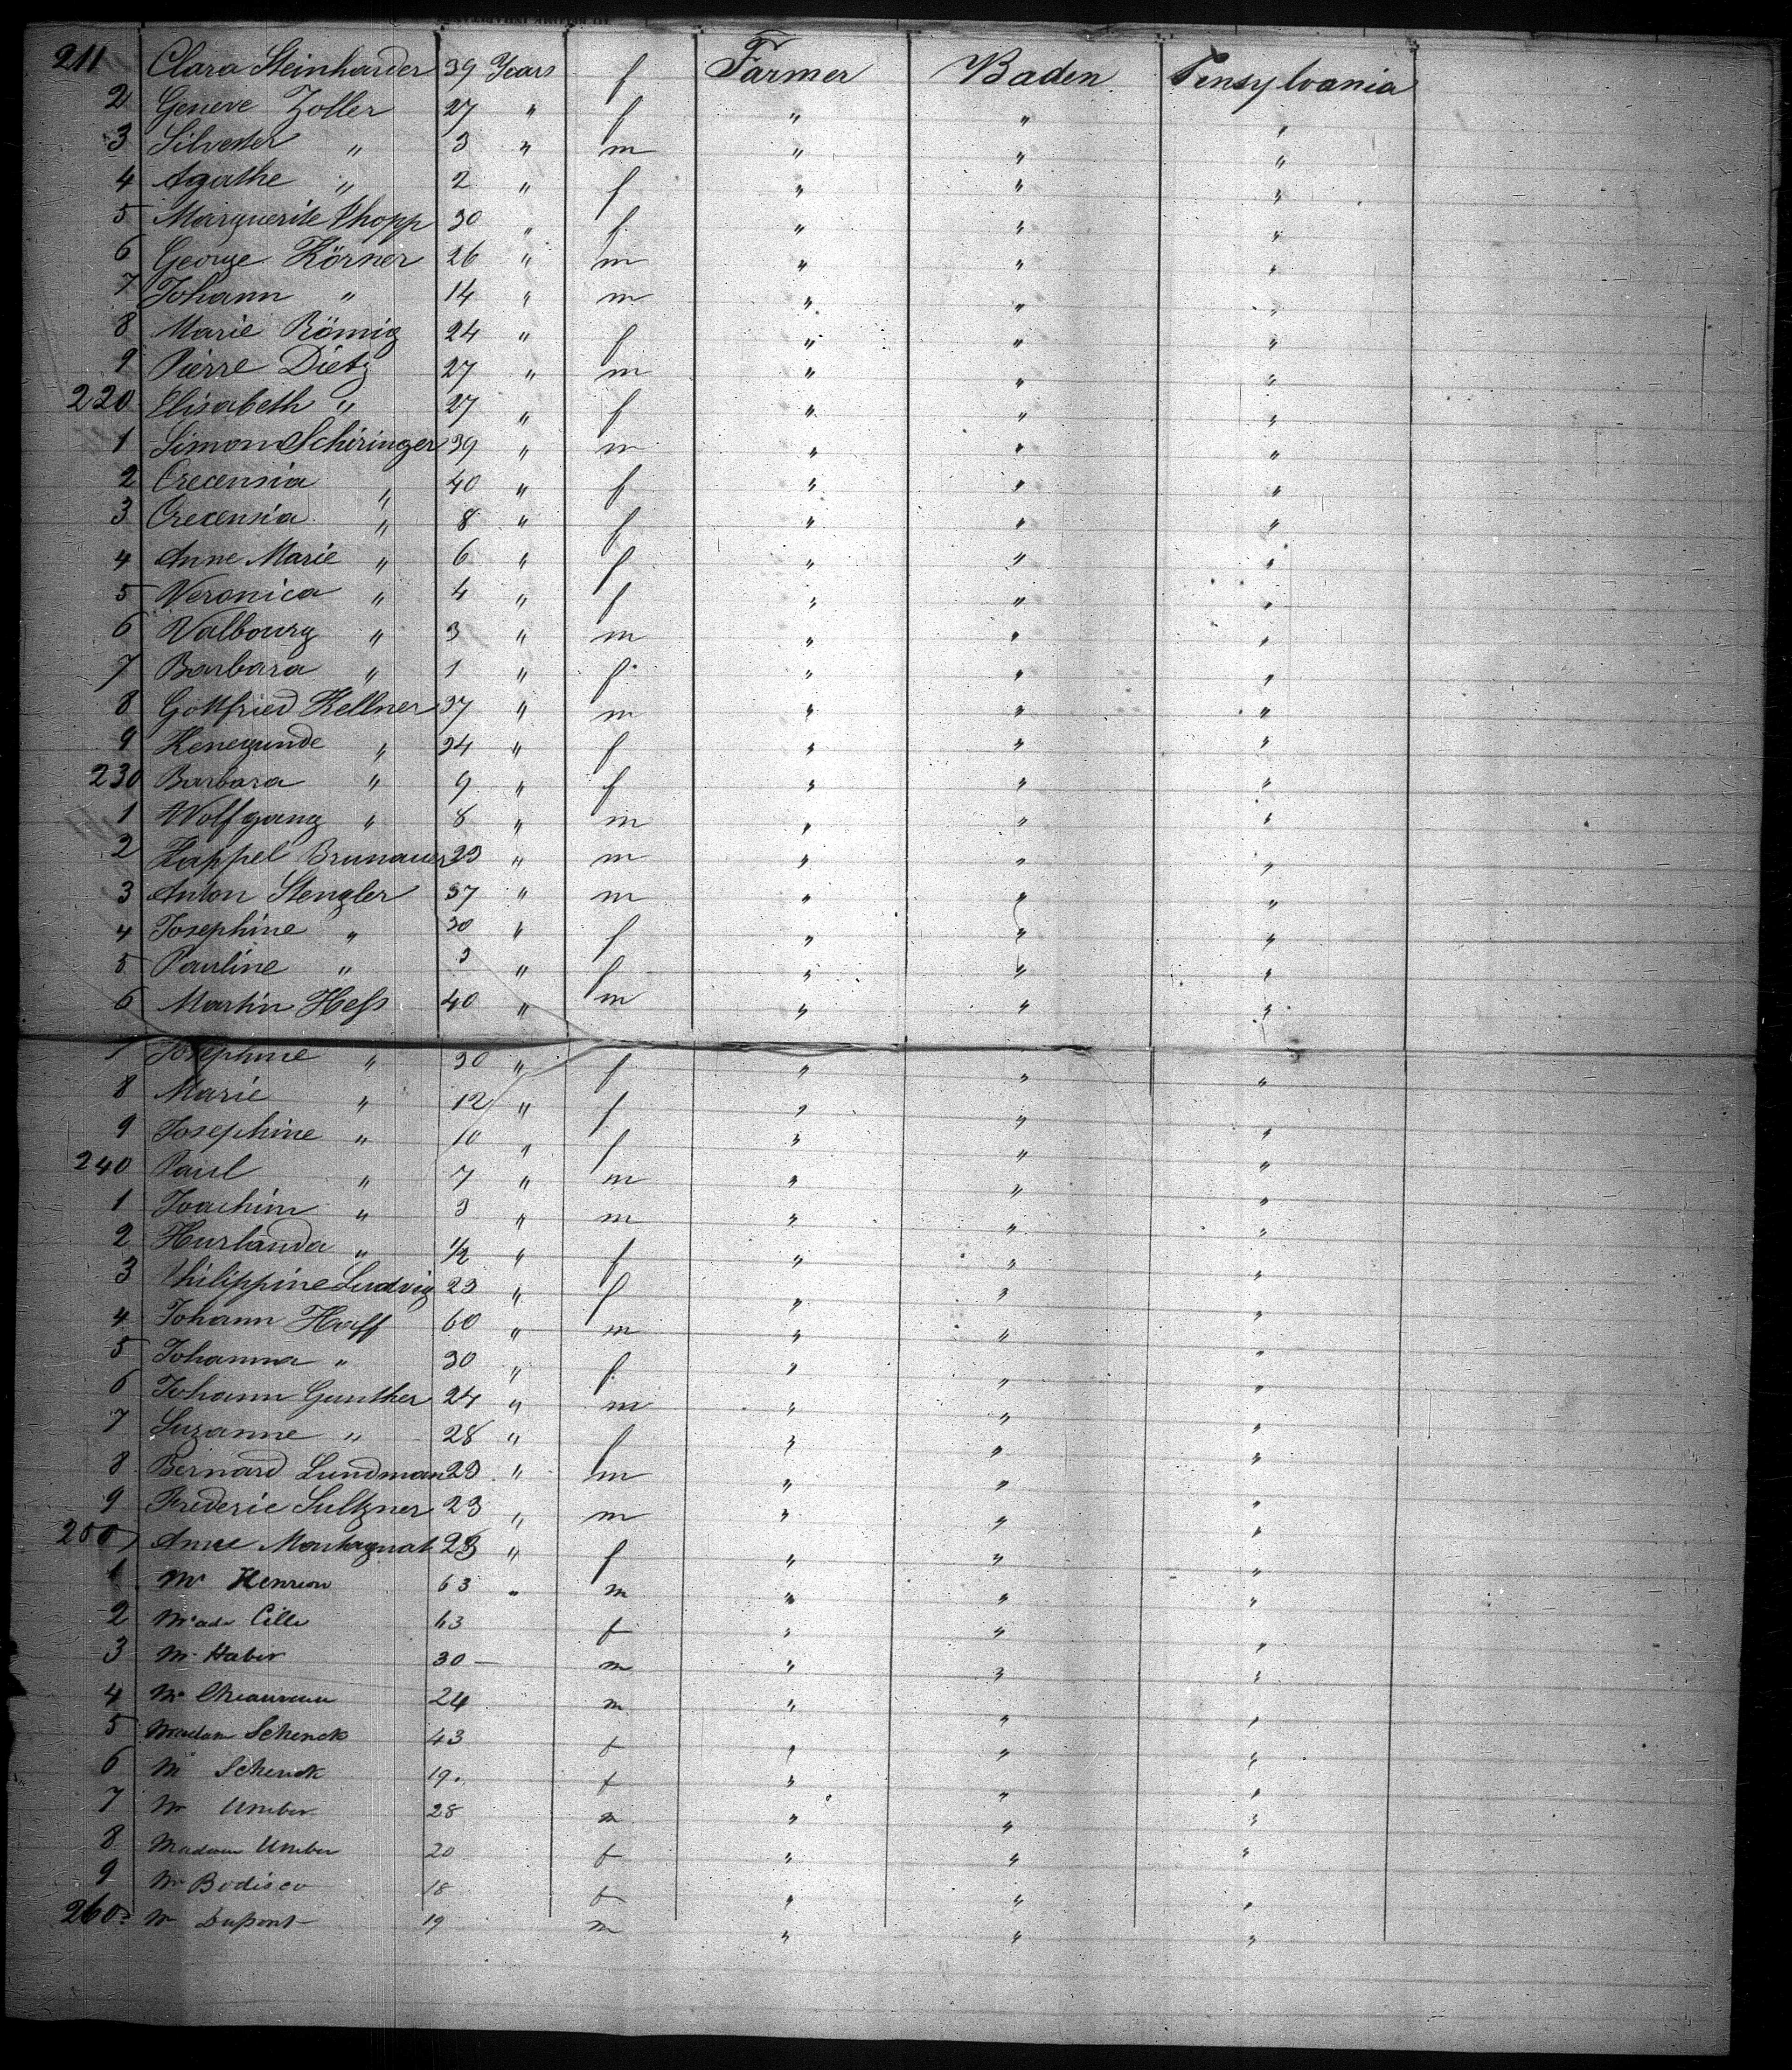 211 Clara Steinharder 39 Years f Farmer Baden Pensylvania
2 Geneve Zoller 27 " f " " "
3 Silvester " 3 " m " " "
4 Agathe " 2 " f " " "
5 Marguerite 30 " f " " "
6 George Körner 26 " m " " "
7 Johann " 14 " m " " "
8 Marie Römig 24 " f " " "
9 Pierre Dietz 27 " m " " "
220 Elisabeth " 27 " f " " "
1 Simon Schiringer 39 " m " " "
2 Crecensia " 40 " f " " "
3 Crecensia " 8 " f " " "
4 Anne Marie " 6 " f " " "
5 Veronica " 4 " f " " "
6 Valbourg " 3 " m " " "
7 Barbara " 1 " f " " "
8 Gottfried Kellner 37 " m " " "
9 Kenegunde " 34 " f " " "
230 Barbara " 9 " f " " "
1 Wolfgang " 8 " m " " "
2 Brunauer 23 " m " " "
3 Anton Stengler 37 " m " " "
4 Josephine " 30 " f " " "
5 Pauline " 3 " f " " "
6 Martin Heſs 40 " m " " "
7 Josephine " 30 " f " " "
8 Marie " 12 " f " " "
9 Josephine " 10 " f " " "
240 Paul " 7 " m " " "
1 Joachim " 3 " m " " "
2 Hurlanda " 1/2 " f " " "
3 Philippine Ludvig 23 " f " " "
4 Johann Haff 60 " m " " "
5 Johanna " 30 " f " " "
6 Johann Gunther 24 " m " " "
7 Suzanne " 28 " f " " "
8 Bernard Lundman 23 " m " " "
9 Frederic Sultzner 23 " m " " "
250 Anne Montagnat 23 " f " " "
1 Mr Henrion 63 " m " " "
2 Cille 43 f " " "
3 Mr Haber 30 — m " " "
4 Mr 24 m " " "
5 Madam Schenck 43 f " " "
6 M Schenck 19 f " " "
7 Mr Umber 28 m " " "
8 Madam Umber 20 f " " "
9 Mr Bodisco 18 f " " "
260 Mr Dupont 19 m " " "